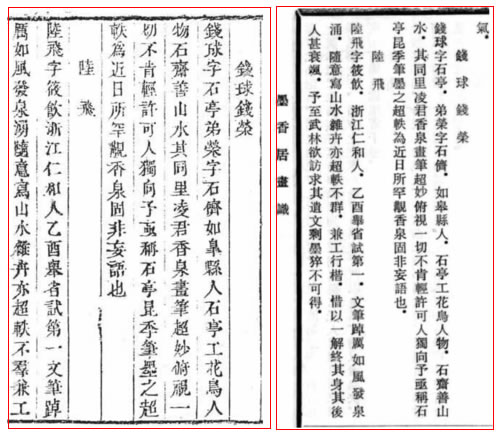 錢球錢榮
錢球字石亭弟榮字石儕如皋縣人石亭工花鳥人
物石齋善山水其同里凌君香泉畫筆超妙俯視一
切不肯輕許可人獨向予亟稱石亭昆季筆墨之超
軼為近日所罕覯香泉固非妄語也
陸飛
陸飛字筱飲浙江仁和人乙酉舉省試第一文筆踔
厲如風發泉涌隨意寫山水雜卉亦超軼不羣兼工
氣．
錢球 錢榮
錢球字石亭．弟榮字石儕．如皋縣人．石亭工花鳥人物．石齋善山
水．其同里凌君香泉畫筆超妙俯視一切不肯輕許可人獨向予亟稱石
亭昆季筆墨之超軼為近日所罕覯香泉固非妄語也．
陸飛
陸飛字筱飲．浙江仁和人．乙酉舉省試第一．文筆踔厲如風發泉
涌．隨意寫山水雜卉亦超軼不群．兼工行楷．惜以一解終其身其後
人甚衰颯．予至武林欲訪求其遺文剩墨猝不可得．
墨香居畫識